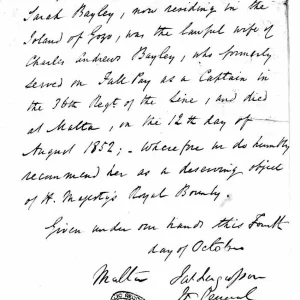 Sarah Bayley, now residing in the
Island of Gozo, was the lawful wife of
Charles Andrews Bayley, who formerly
served on Full Pay as a Captain in
the 36th Regt of the Line, and died
at Malta, on the 12th day of
August 1852; - Wherefore we do humbly
recommend her as a deserving object
of H. Majesty's Royal Bounty.
Given under our hands this Fourth
day of October
Malta
Lt General